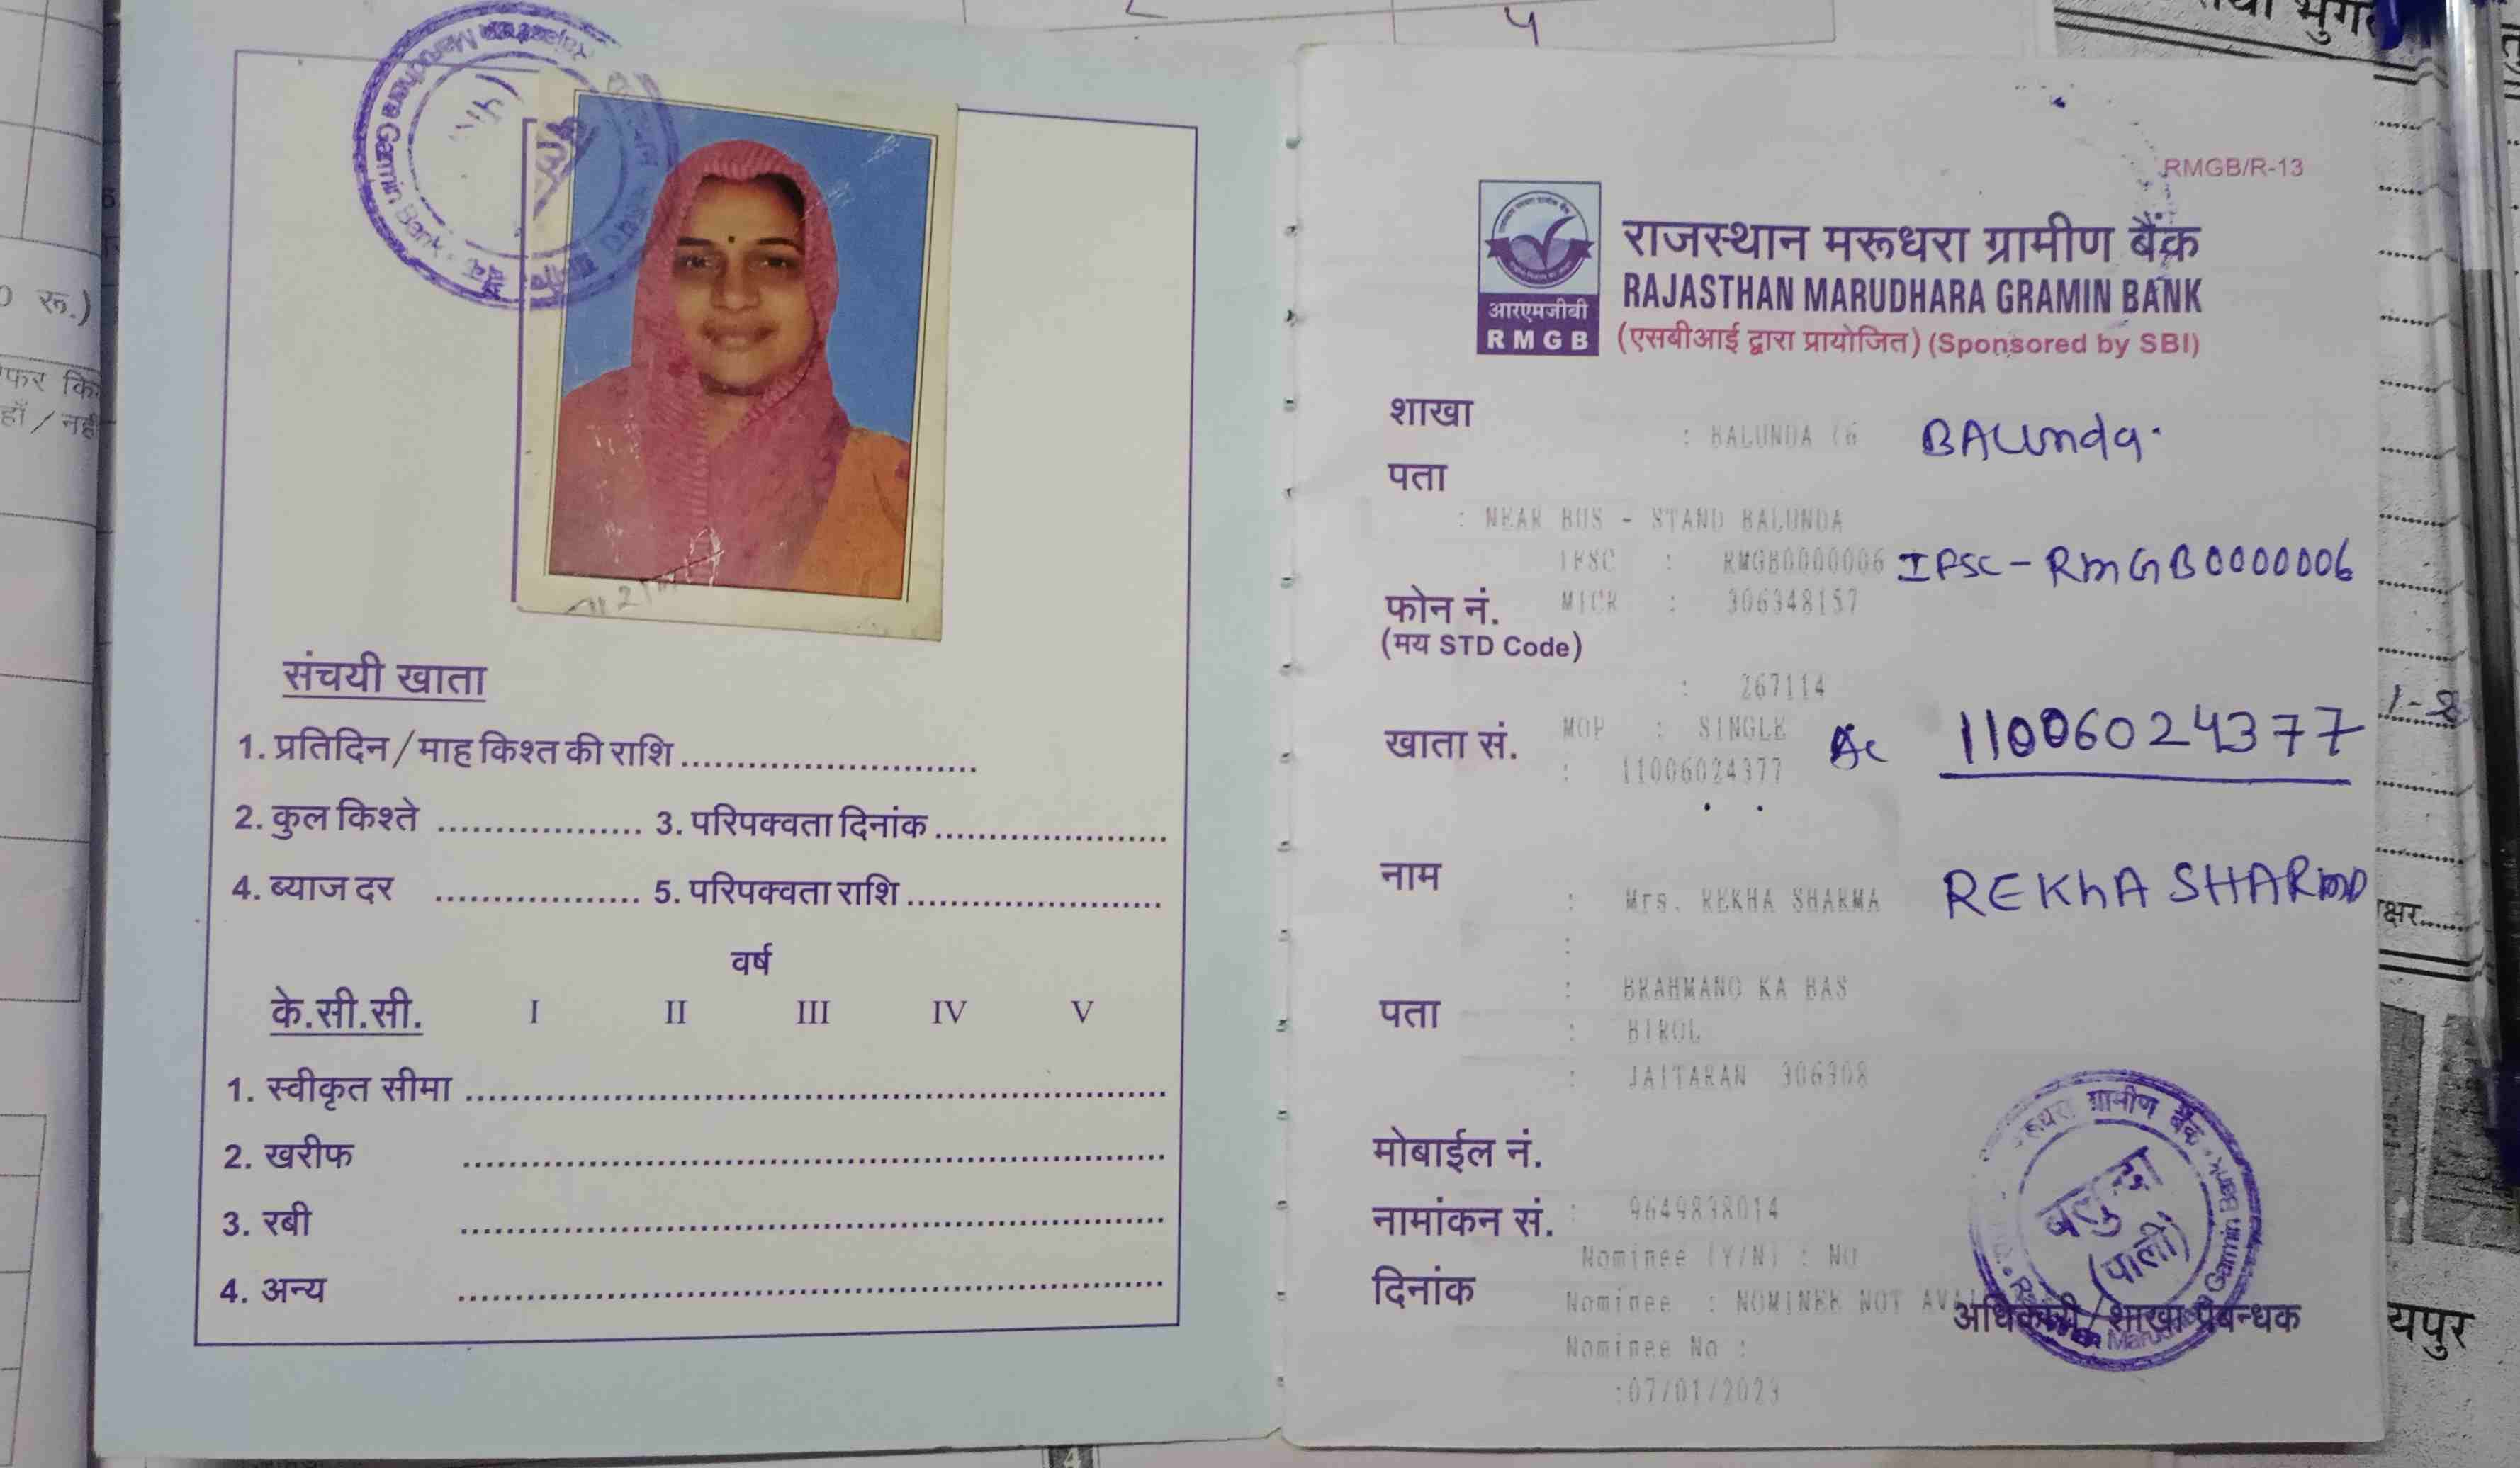 Rajasthan Marudhara Gramin Bank
संचयी खाता
1. प्रतिदिन / माह किश्त की राशि
2. कुल किश्ते 3. परिपक्वता दिनांक
4. ब्याज दर 5. परिपक्वता राशि
वर्ष
के.सी.सी. I II III IV V
1. स्वीकृत सीमा
2. खरीफ
3. रबी
4. अन्य
RMGB/R-13
राजस्थान मरूधरा ग्रामीण बैंक
RAJASTHAN MARUDHARA GRAMIN BANK
(एसबीआई द्वारा प्रायोजित) (Sponsored by SBI)
आरएमजीबी
RMGB
शाखा : BALUNDA BALUnda
पता
: NEAR BUS - STAND BALUNDA
IFSC : RMGB0000006 IFSC - RmGB0000006
फोन नं. MICR : 306348157
(मय STD Code)
: 267114
MOP : SINGLE
खाता सं. : 11006024377 Ac 11006024377
नाम : Mrs. REKHA SHARMA REKhA SHARMA
: BRAHMANO KA BAS
पता : BIROL
: JAITARAN 306308
मोबाईल नं.
नामांकन सं. : 9649838014
Nominee (Y/N) : NO
दिनांक Nominee : NOMINEE NOT
Nominee No :
:07/01/2023
ग्रामीण बैंक
बलुन्दा
(पाली)
अधिकारी / शाखा प्रबन्धक
रू.)
हाँ / नहीं
यपुर